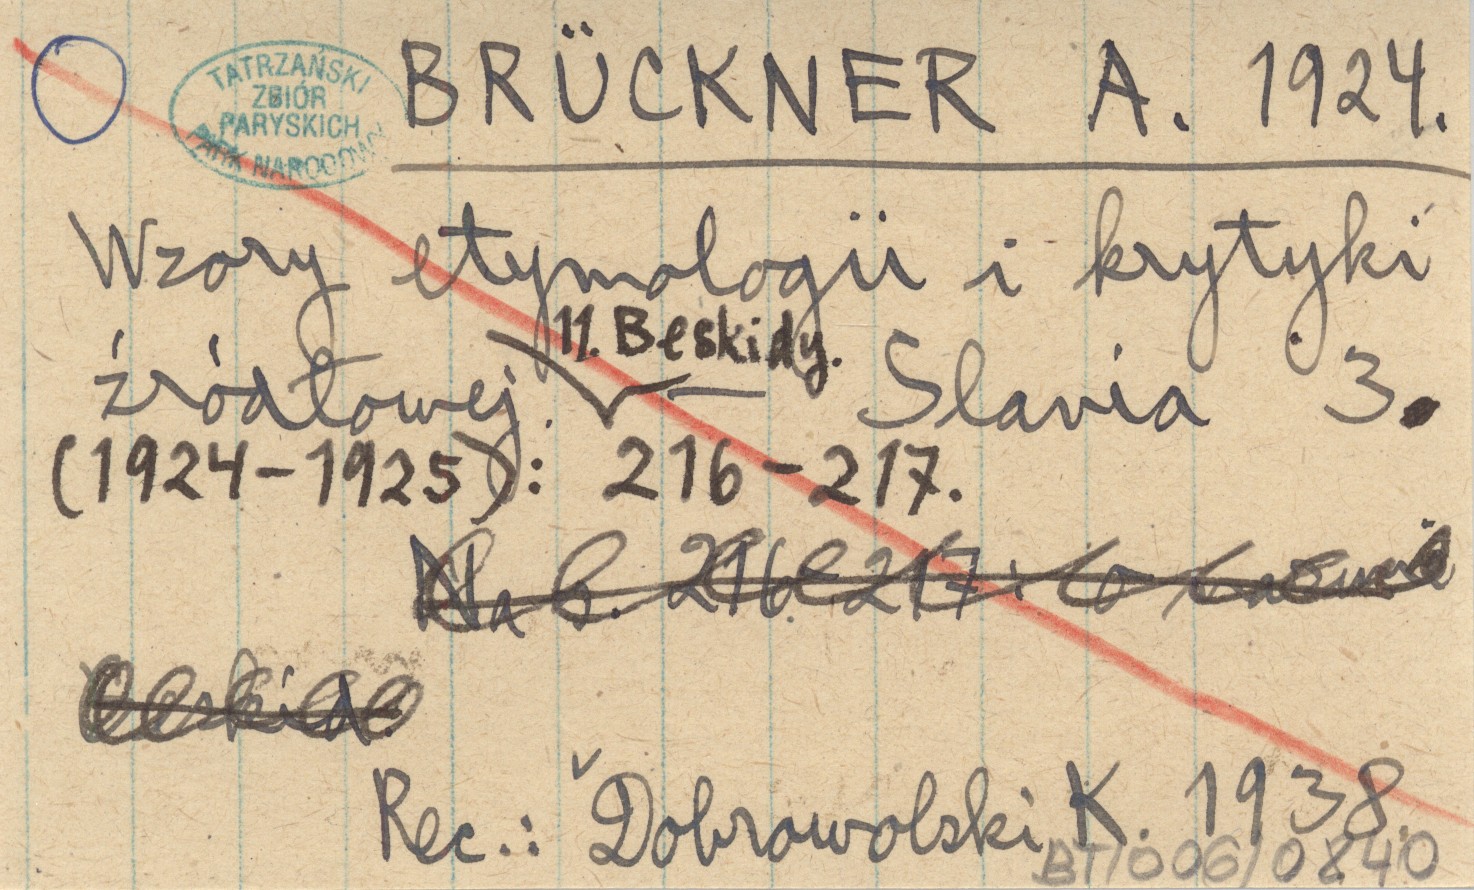 TATRZAŃSKI
ZBIÓR
PARYSKICH
PARK NARODOWY
BRÜCKNER A. 1924.
Wzory etymologii i krytyki
11. Beskidy.
źródłowej. — Slavia 3.
(1924-1925): 216-217.
Na s. 216-217: o nazwie
Beskid.
Rec.: Dobrowolski K. 1938.
BT/006/0840